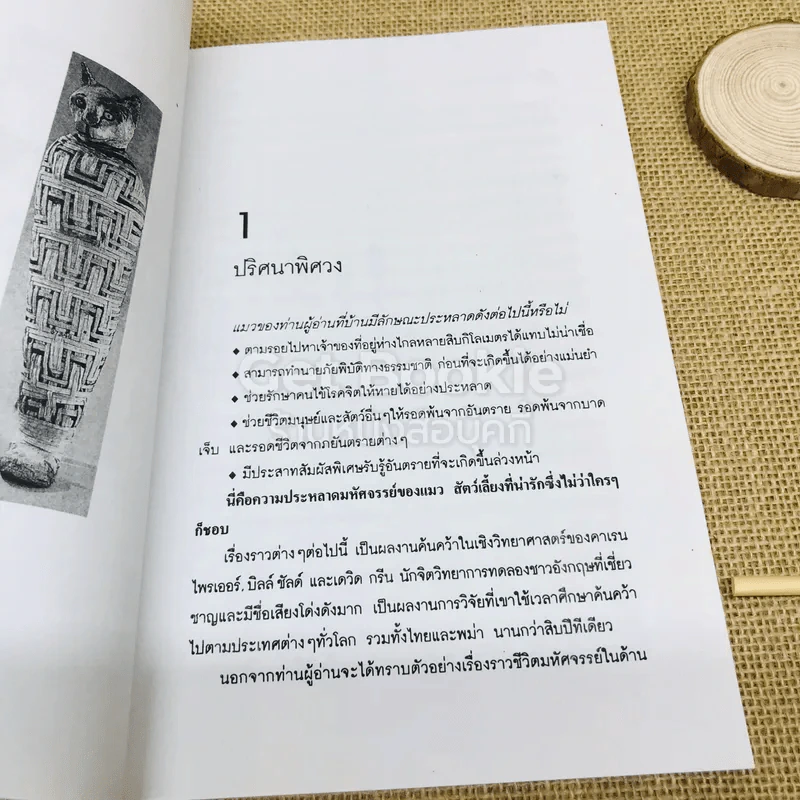 1
ปริศนาพิศวง
แมวของท่านผู้อ่านที่บ้านมีลักษณะประหลาดดังต่อไปนี้หรือไม่
◆ ตามรอยไปหาเจ้าของที่อยู่ห่างไกลหลายสิบกิโลเมตรได้แทบไม่น่าเชื่อ
◆ สามารถทำนายภัยพิบัติทางธรรมชาติ ก่อนที่จะเกิดขึ้นได้อย่างแม่นยำ
◆ ช่วยรักษาคนไข้โรคจิตให้หายได้อย่างประหลาด
◆ ช่วยชีวิตมนุษย์และสัตว์อื่นๆให้รอดพ้นจากอันตราย รอดพ้นจากบาด
เจ็บ และรอดชีวิตจากภยันตรายต่างๆ
◆ มีประสาทสัมผัสพิเศษรับรู้อันตรายที่จะเกิดขึ้นล่วงหน้า
นี่คือความประหลาดมหัศจรรย์ของแมว สัตว์เลี้ยงที่น่ารักซึ่งไม่ว่าใครๆ
ก็ชอบ
เรื่องราวต่างๆต่อไปนี้ เป็นผลงานค้นคว้าในเชิงวิทยาศาสตร์ของคาเรน
ไพรเออร์, บิลล์ ชัลด์ และเดวิด กรีน นักจิตวิทยาการทดลองชาวอังกฤษที่เชี่ยว
ชาญและมีชื่อเสียงโด่งดังมาก เป็นผลงานการวิจัยที่เขาใช้เวลาศึกษาค้นคว้า
ไปตามประเทศต่างๆทั่วโลก รวมทั้งไทยและพม่า นานกว่าสิบปีทีเดียว
นอกจากท่านผู้อ่านจะได้ทราบตัวอย่างเรื่องราวชีวิตมหัศจรรย์ในด้าน
Get Bookie
ร้านหนังสือบุคกี้